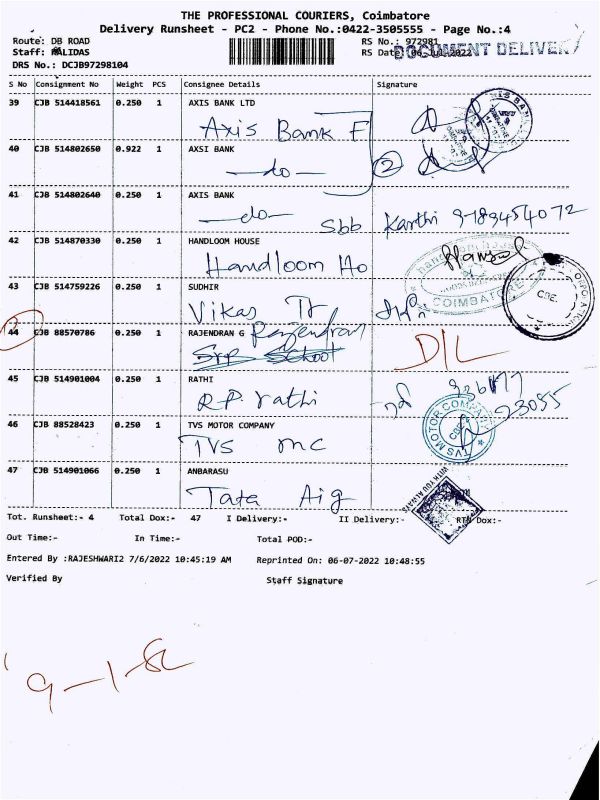 THE PROFESSIONAL COURIERS, Coimbatore
Delivery Runsheet - PC2 - Phone No.:0422-3505555 - Page No.:4
Route: DB ROAD
RS No.: 972981
Staff: KALIDAS
RS Date: 06-Jul-2022
DOCUMENT DELIVERY
DRS No.: DCJB97298104
S No Consignment No Weight PCS Consignee Details Signature
39 CJB 514418561 0.250 1 AXIS BANK LTD
Axis Bank F
40 CJB 514802650 0.922 1 AXSI BANK
—do— 2
41 CJB 514802640 0.250 1 AXIS BANK
—do— Sbb Karthi 9789454072
42 CJB 514870330 0.250 1 HANDLOOM HOUSE
Handloom Ho
COIMBATORE
43 CJB 514759226 0.250 1 SUDHIR
CBE.
Vikas Tr
44 CJB 88570786 0.250 1 RAJENDRAN G Rajendran
Srp School D/L
45 CJB 514901004 0.250 1 RATHI
R.P. rathi
46 CJB 88528423 0.250 1 TVS MOTOR COMPANY
TVS mc
TVS MOTOR COMPANY
47 CJB 514901066 0.250 1 ANBARASU
Tata Aig
WITH YOU ALWAYS
Tot. Runsheet:- 4 Total Dox:- 47 I Delivery:- II Delivery:- RTN Dox:-
Out Time:- In Time:- Total POD:-
Entered By :RAJESHWARI2 7/6/2022 10:45:19 AM Reprinted On: 06-07-2022 10:48:55
Verified By Staff Signature